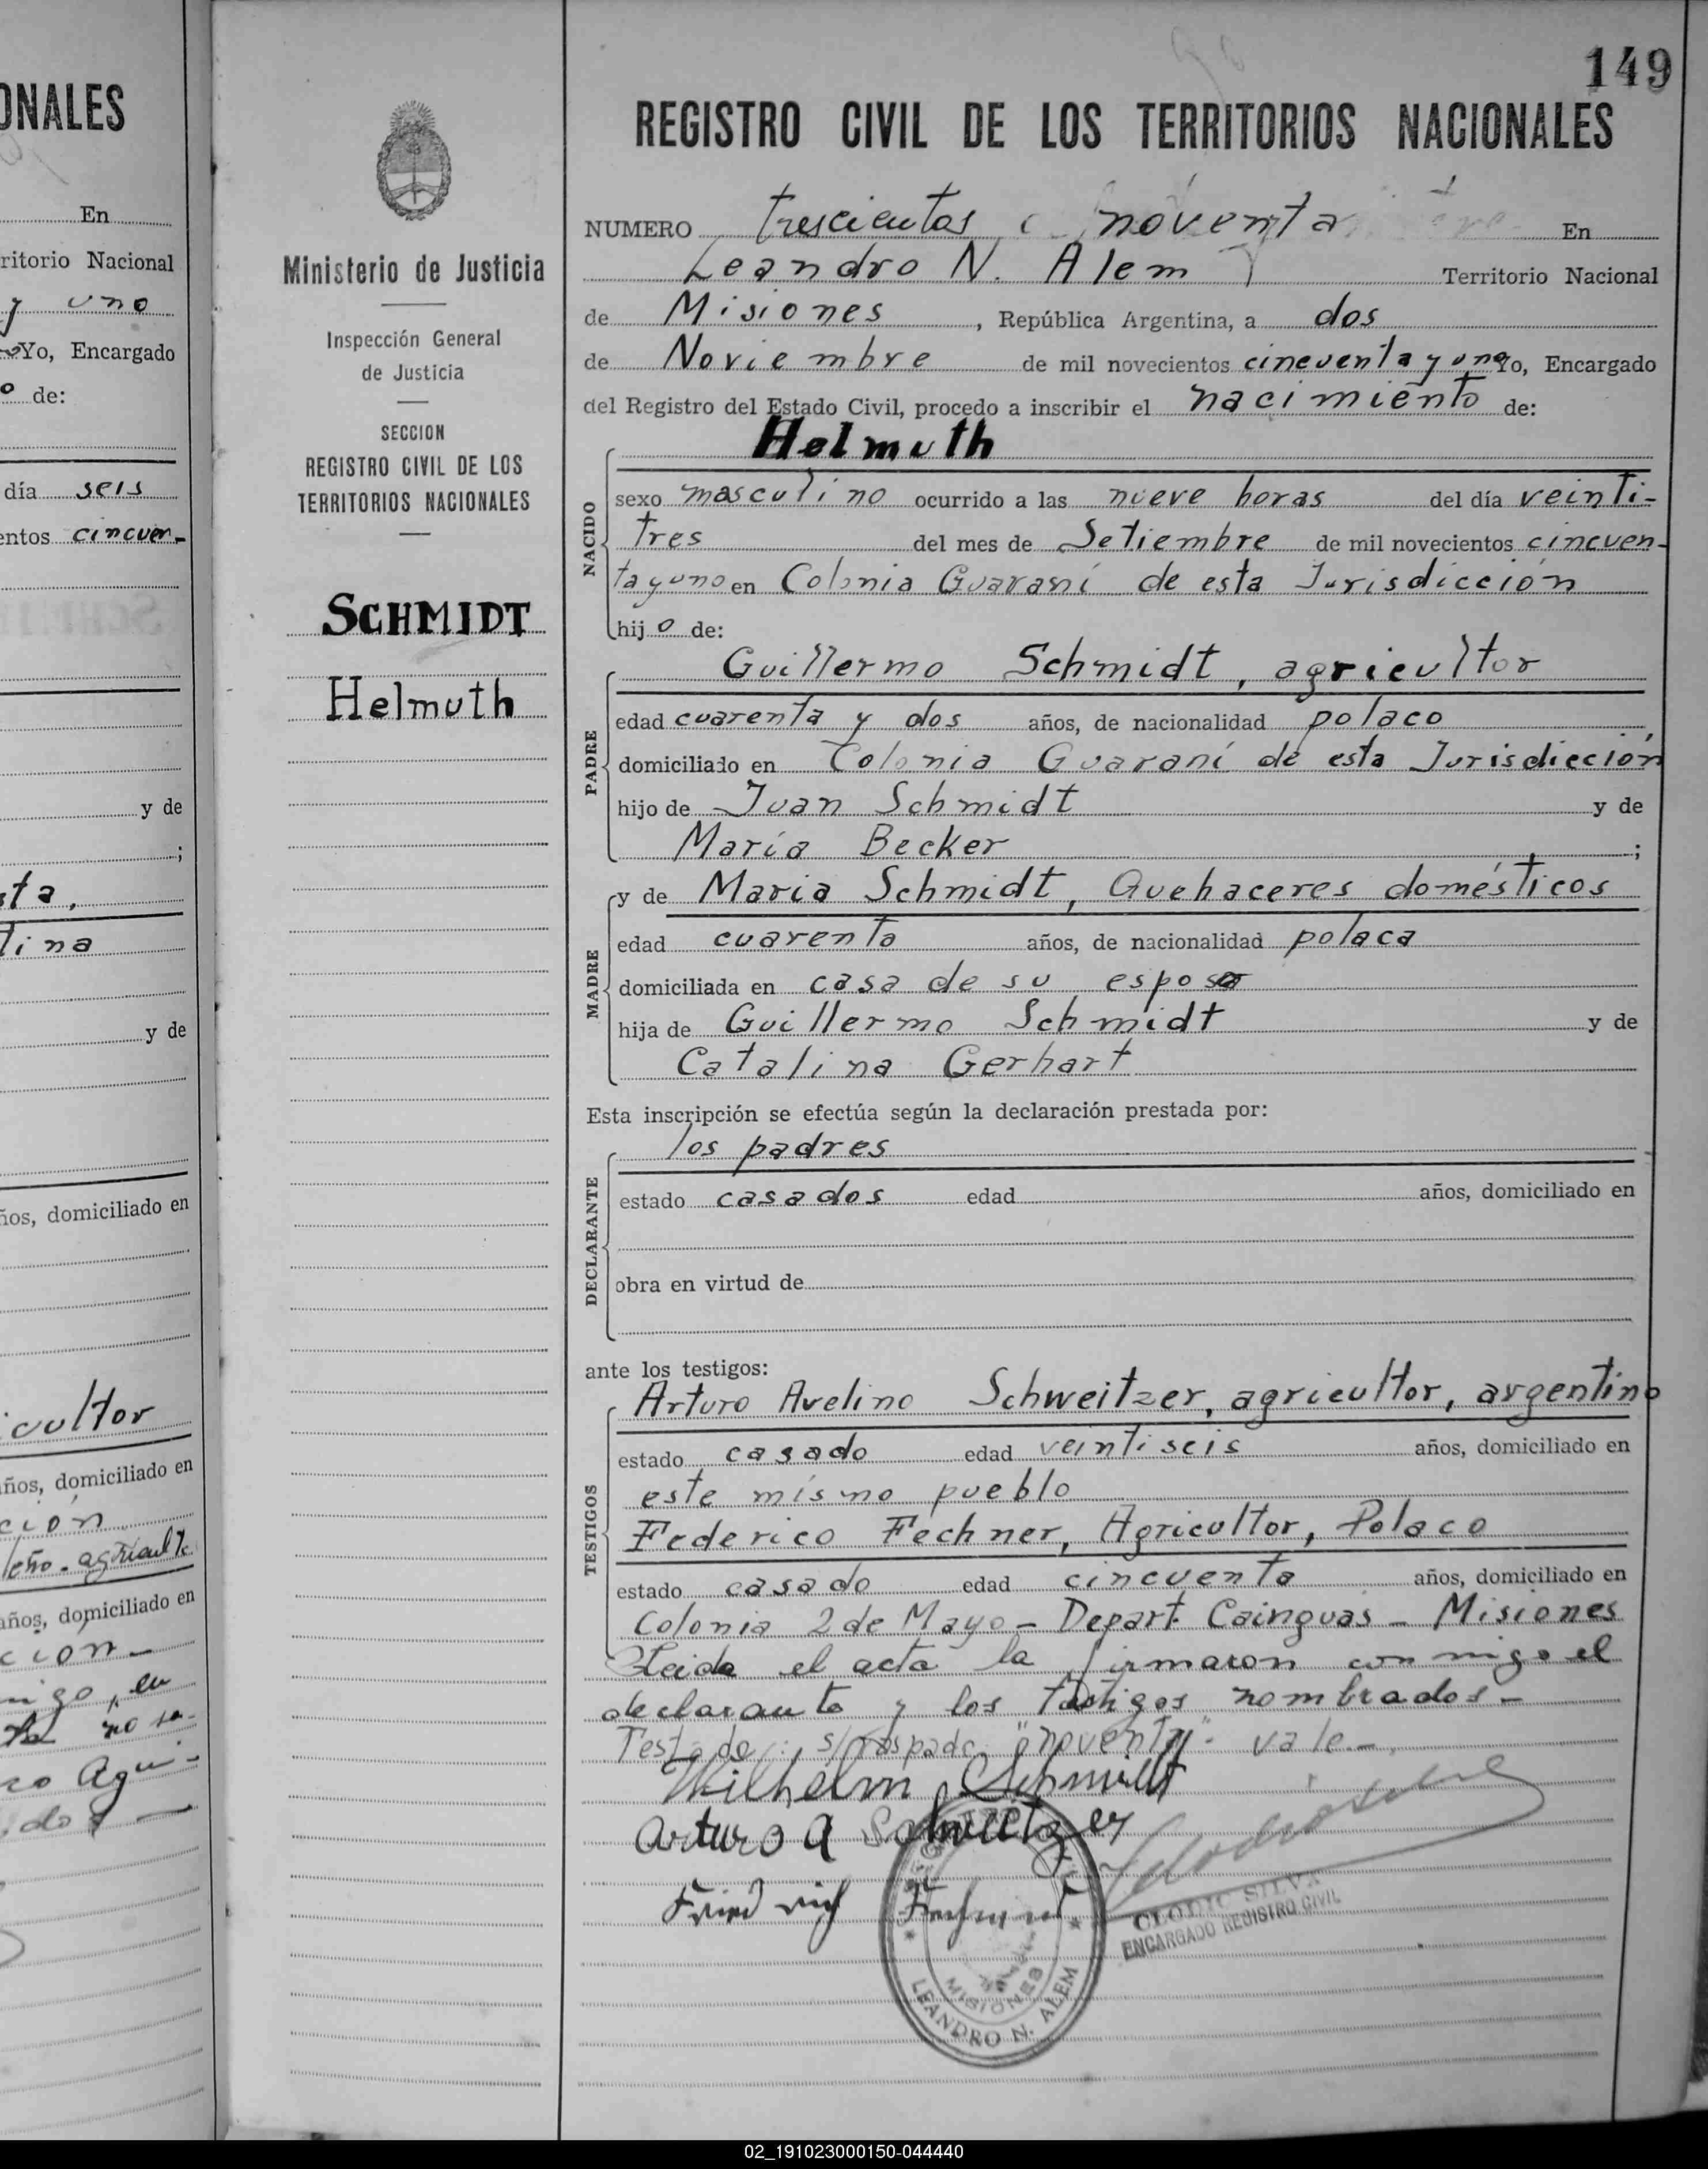 ONALES
En
ritorio Nacional
y uno
Yo, Encargado
o de:
día seis
entos cincuen-
y de
;
ta,
tina
y de
ños, domiciliado en
icultor
años, domiciliado en
ción
años, domiciliado en
cion-
migo, en
no sa-
Ministerio de Justicia
Inspección General
de Justicia
SECCION
REGISTRO CIVIL DE LOS
TERRITORIOS NACIONALES
SCHMIDT
Helmuth
149
REGISTRO CIVIL DE LOS TERRITORIOS NACIONALES
NUMERO trescientos noventa En
Leandro N. Alem Territorio Nacional
de Misiones, República Argentina, a dos
de Noviembre de mil novecientos cincuenta y uno Yo, Encargado
del Registro del Estado Civil, procedo a inscribir el nacimiento de:
Helmuth
NACIDO
sexo masculino ocurrido a las nueve horas del día veinti-
tres del mes de Setiembre de mil novecientos cincuen-
ta y uno en Colonia Guaraní de esta Jurisdicción
hijo de:
Guillermo Schmidt, agricultor
PADRE
edad cuarenta y dos años, de nacionalidad polaco
domiciliado en Colonia Guaraní de esta Jurisdicción
hijo de Juan Schmidt y de
María Becker ;
y de Maria Schmidt, Quehaceres domésticos
MADRE
edad cuarenta años, de nacionalidad polaca
domiciliada en casa de su esposo
hija de Guillermo Schmidt y de
Catalina Gerhart
Esta inscripción se efectúa según la declaración prestada por:
los padres
DECLARANTE
estado casados edad años, domiciliado en
obra en virtud de
ante los testigos:
Arturo Avelino Schweitzer, agricultor, argentino
TESTIGOS
estado casado edad veintiseis años, domiciliado en
este mismo pueblo
Federico Fechner, Agricultor, Polaco
estado casado edad cincuenta años, domiciliado en
Colonia 2 de Mayo - Depart. Cainguas - Misiones
Leida el acta la firmaron con migo el
declarante y los testigos nombrados-
Testado: s/raspado "noventa". vale.-
Wilhelm Schmidt
Arturo A Schweitzer
Friedrich Fechner
MISIONES
LEANDRO N. ALEM
CLODIC SILVA
ENCARGADO REGISTRO CIVIL
02_191023000150-044440